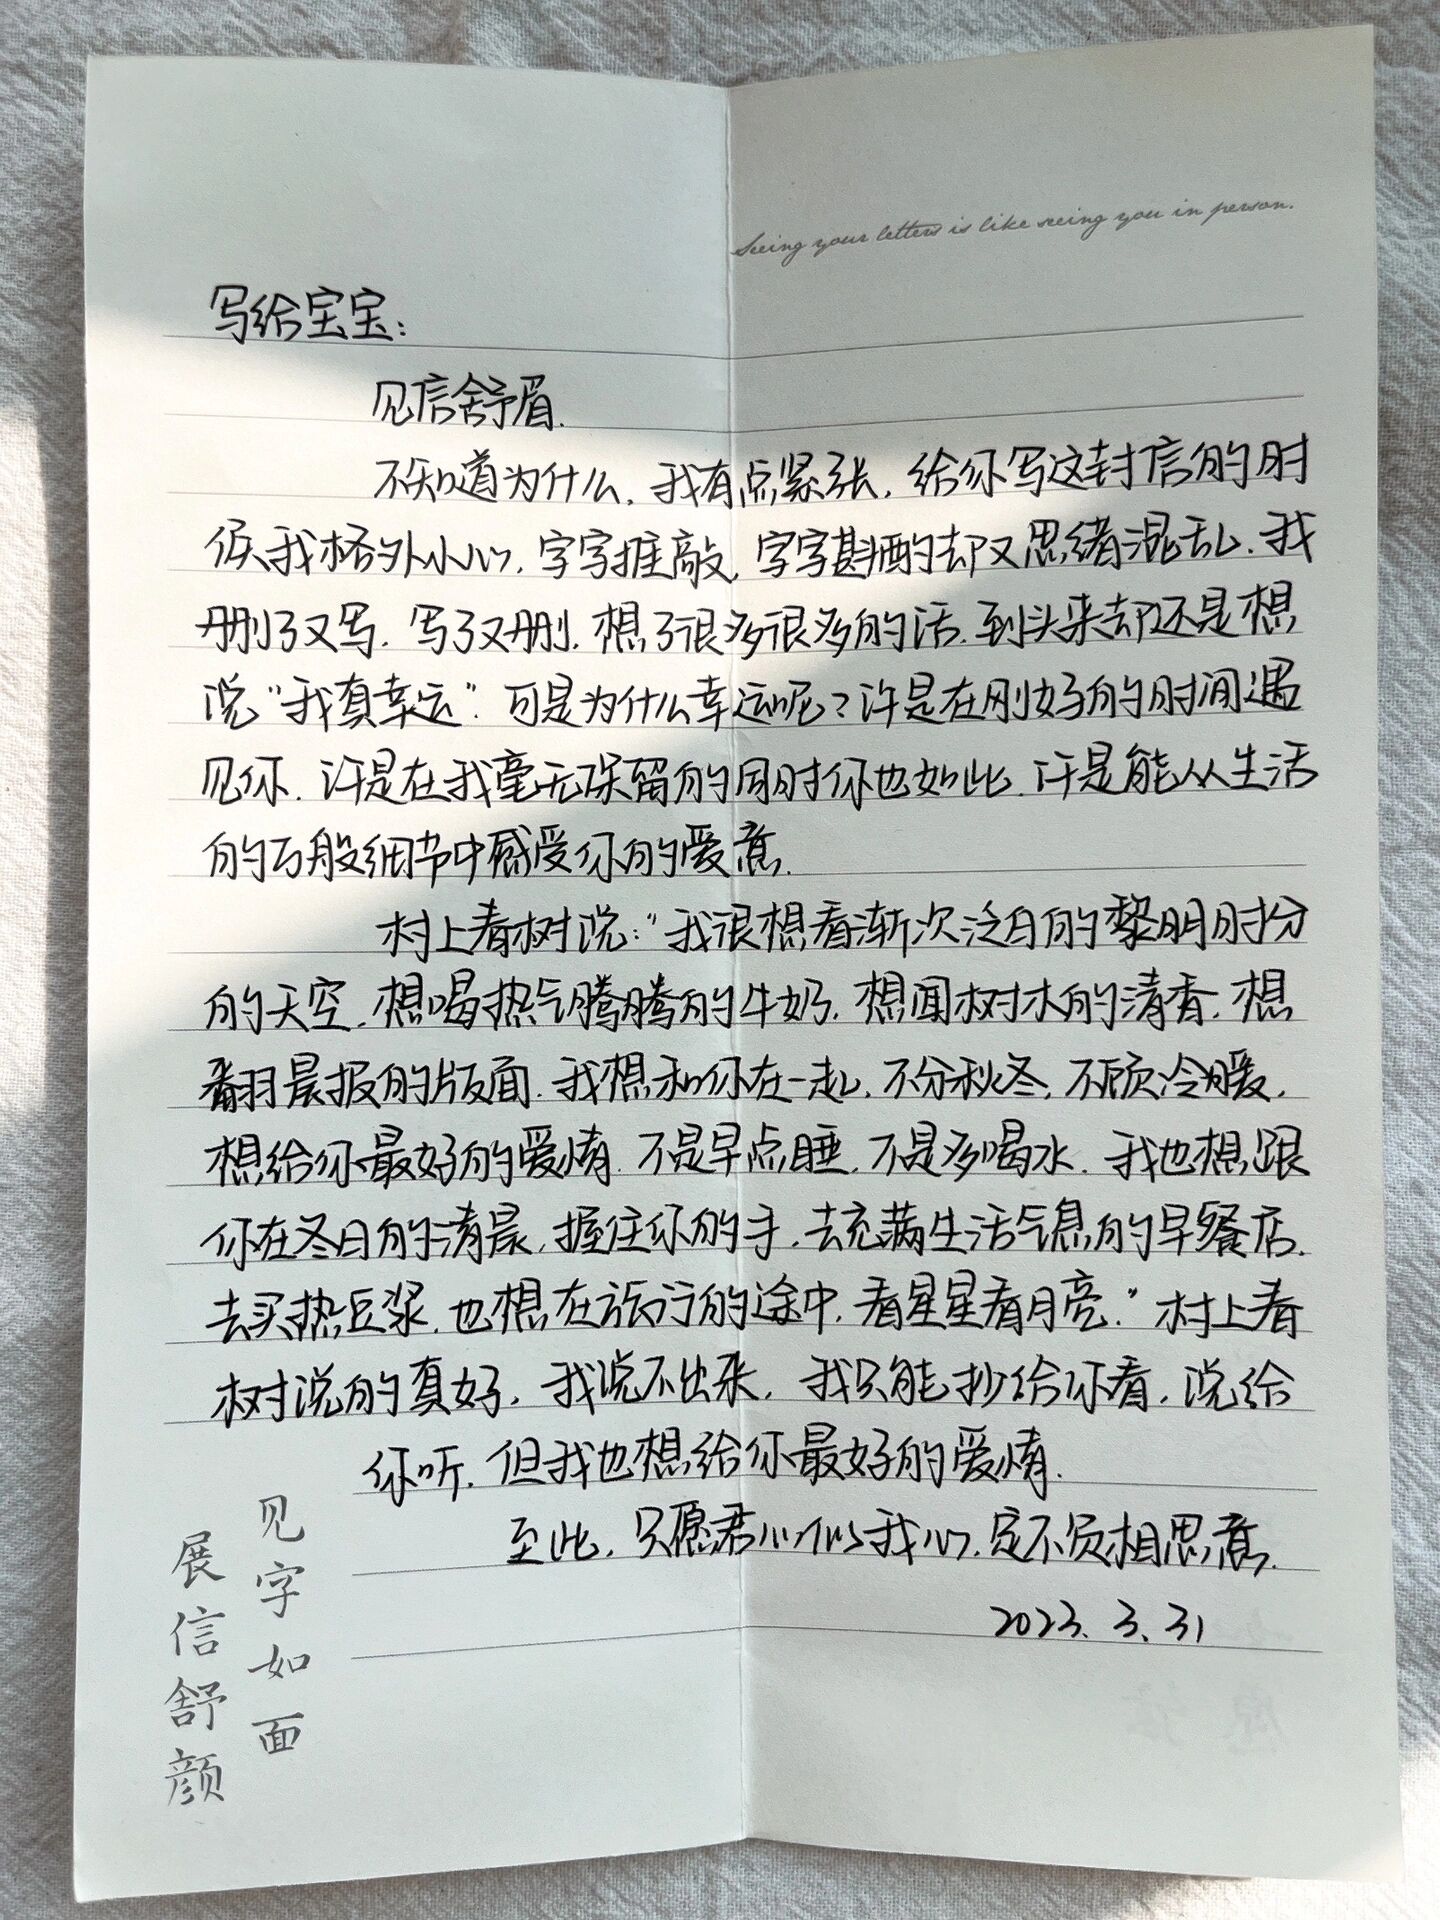 Seeing your letters is like seeing you in person.
写给宝宝：
见信舒眉.
不知道为什么，我有点紧张，给你写这封信的时
候我格外小心，字字推敲，字字斟酌却又思绪混乱.我
删了又写.写了又删.想了很多很多的话.到头来却还是想
说“我真幸运”.可是为什么幸运呢？许是在刚好的时间遇
见你.许是在我毫无保留的同时你也如此.许是能从生活
的万般细节中感受你的爱意.
村上春树说：“我很想看渐次泛白的黎明时分
的天空.想喝热气腾腾的牛奶，想闻树木的清香.想
翻晨报的版面.我想和你在一起.不分秋冬，不顾冷暖，
想给你最好的爱情.不是早点睡.不是多喝水.我也想跟
你在冬日的清晨，握住你的手，去充满生活气息的早餐店.
去买热豆浆.也想在旅行的途中，看星星看月亮.”村上春
树说的真好，我说不出来，我只能抄给你看，说给
你听.但我也想给你最好的爱情.
至此，只愿君心似我心，定不负相思意.
2023.3.31
见字如面
展信舒颜